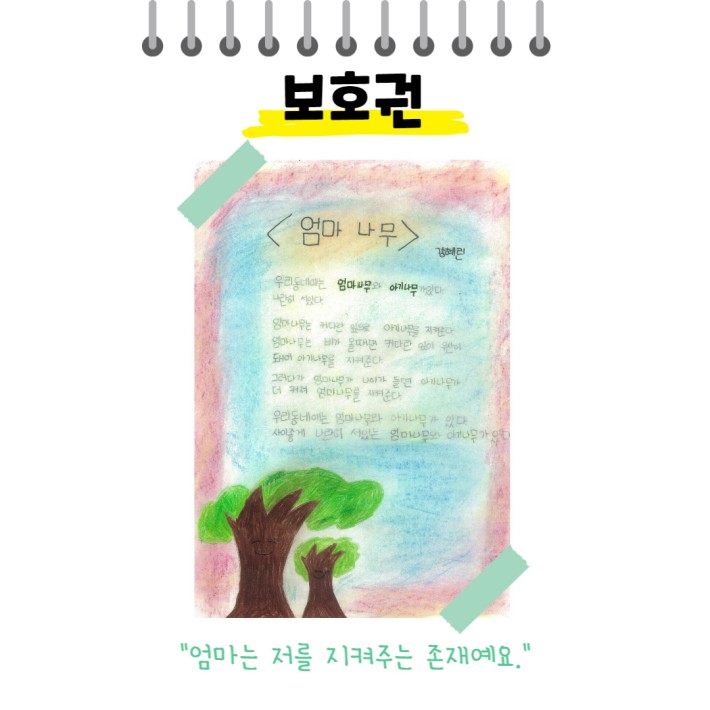 보호권
<엄마 나무>
김혜린
우리동네에는 엄마나무와 아기나무가 있다
나란히 서있다
엄마나무는 커다란 잎으로 아기나무를 지켜준다
엄마나무는 비가 올때면 커다란 잎이 우산이
돼어 아기나무를 지켜준다
그러다가 엄마나무가 나이가 들면 아기나무가
더 커져 엄마나무를 지켜준다
우리동네에는 엄마나무와 아기나무가 있다
사이좋게 나란히 서있는 엄마나무와 아기나무가 있다
"엄마는 저를 지켜주는 존재예요."